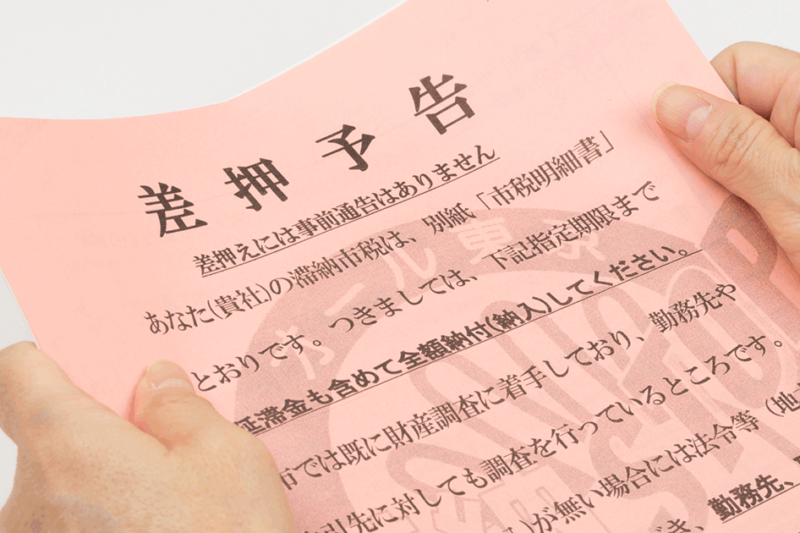 差押予告
差押えには事前通告はありません
あなた(貴社)の滞納市税は、別紙「市税明細書」
とおりです。つきましては、下記指定期限まで
延滞金も含めて全額納付(納入)してください。
市では既に財産調査に着手しており、勤務先や
取引先に対しても調査を行っているところです。
)が無い場合には法令等(地
き、勤務先、
オール東京